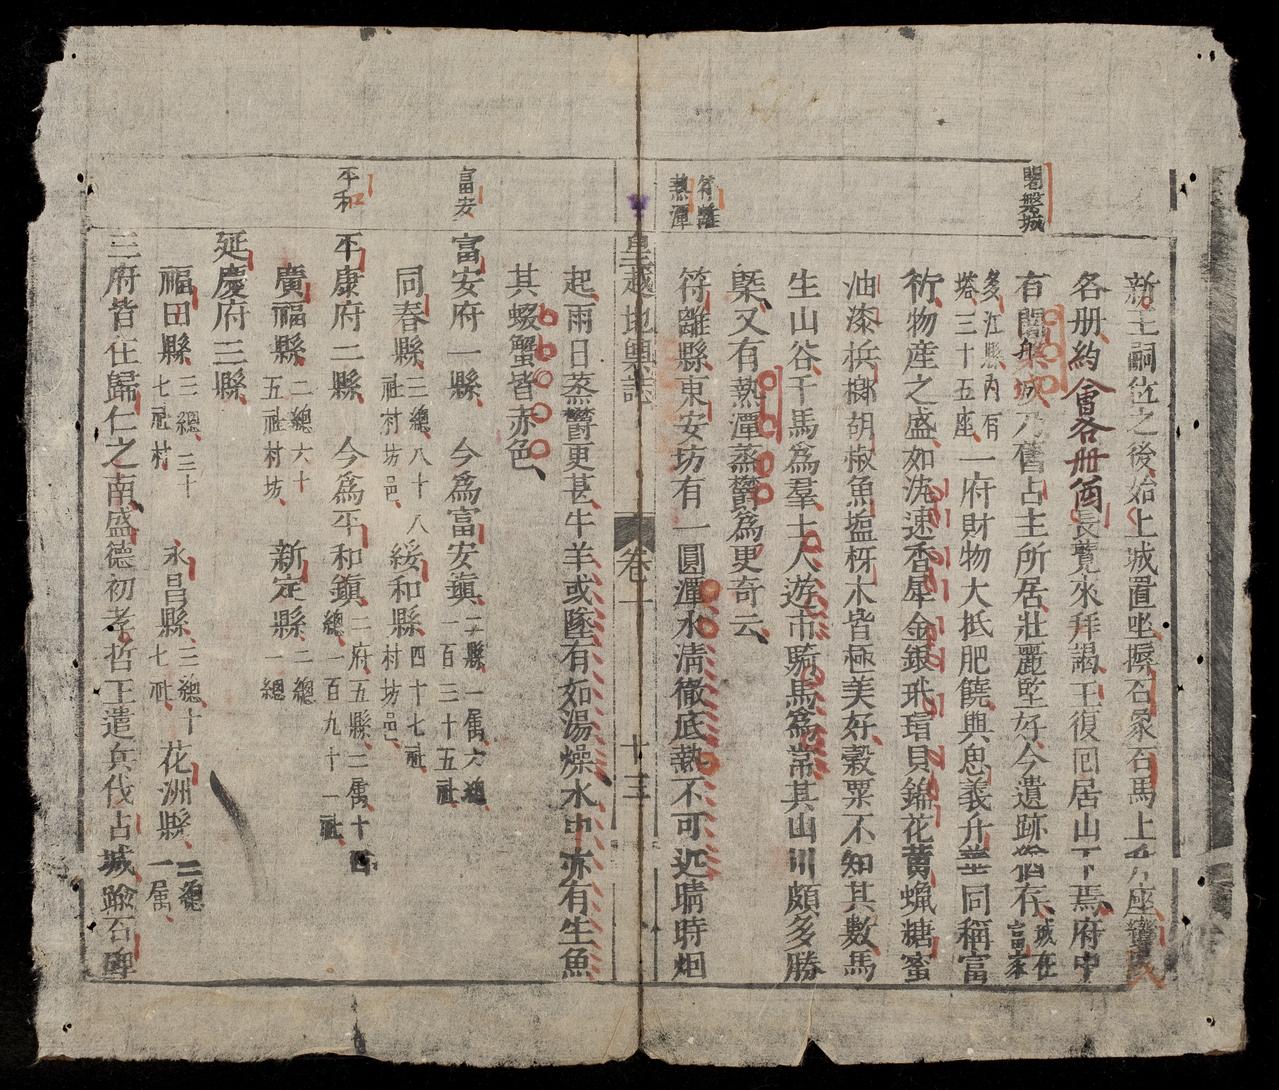 闍槃城
新主嗣位之後始上城置坐褥石象石馬上方座蠻民
各册約會各册酋長覽來拜謁王復回居山下焉府中
有闍槃城乃舊占主所居壯麗堅好今遺跡猶在城在富家
多江縣内有塔三十五座一府財物大抵肥饒與思義升華同稱富
衍物産之盛如沈速香犀金銀玳瑁貝錦花黄蠟糖蜜
油漆梹榔胡椒魚塩材木皆極美好穀粟不知其數馬
生山谷千馬爲羣土人遊市騎馬爲常其山川頗多勝
槩又有熱潭蒸欝爲更奇云
符離
熱潭
符離縣東安坊有一圓潭水淸徹底熱不可近晴時烟
皇越地輿誌 卷一 十三
起雨日蒸欝更甚牛羊或墜有如湯燥水中亦有生魚
其蝦蟹皆赤色
富安
富安府一縣 今爲富安鎮二縣一属六總一百三十五社
同春縣三總八十八社村坊邑 綏和縣四十七社村坊邑
平和
平康府二縣 今爲平和鎮二府五縣二属十四總一百九十一社
廣福縣二總六十五社村坊 新定縣二總一總
延慶府三縣
福田縣三總三十七社村 永昌縣三總十七社 花洲縣二總一属
三府皆在歸仁之南盛德初孝哲王遣兵伐占城踰石碑